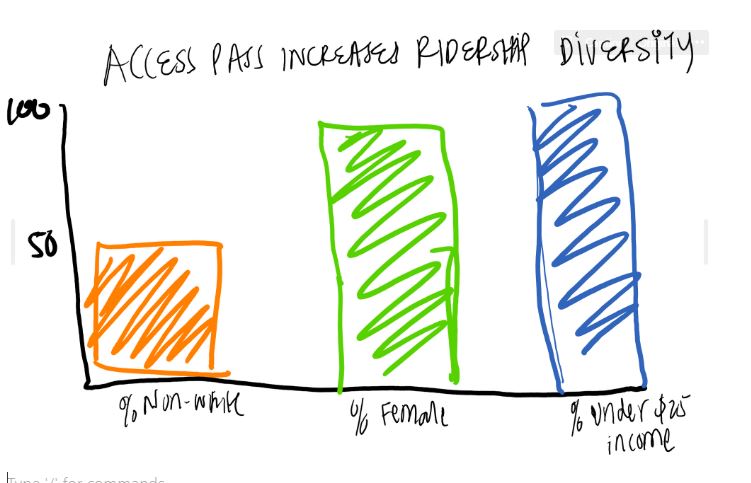 ACCESS PASS INCREASES RIDERSHIP DIVERSITY
100
50
% Non-white
% Female
% under $25
income
Type '/' for commands